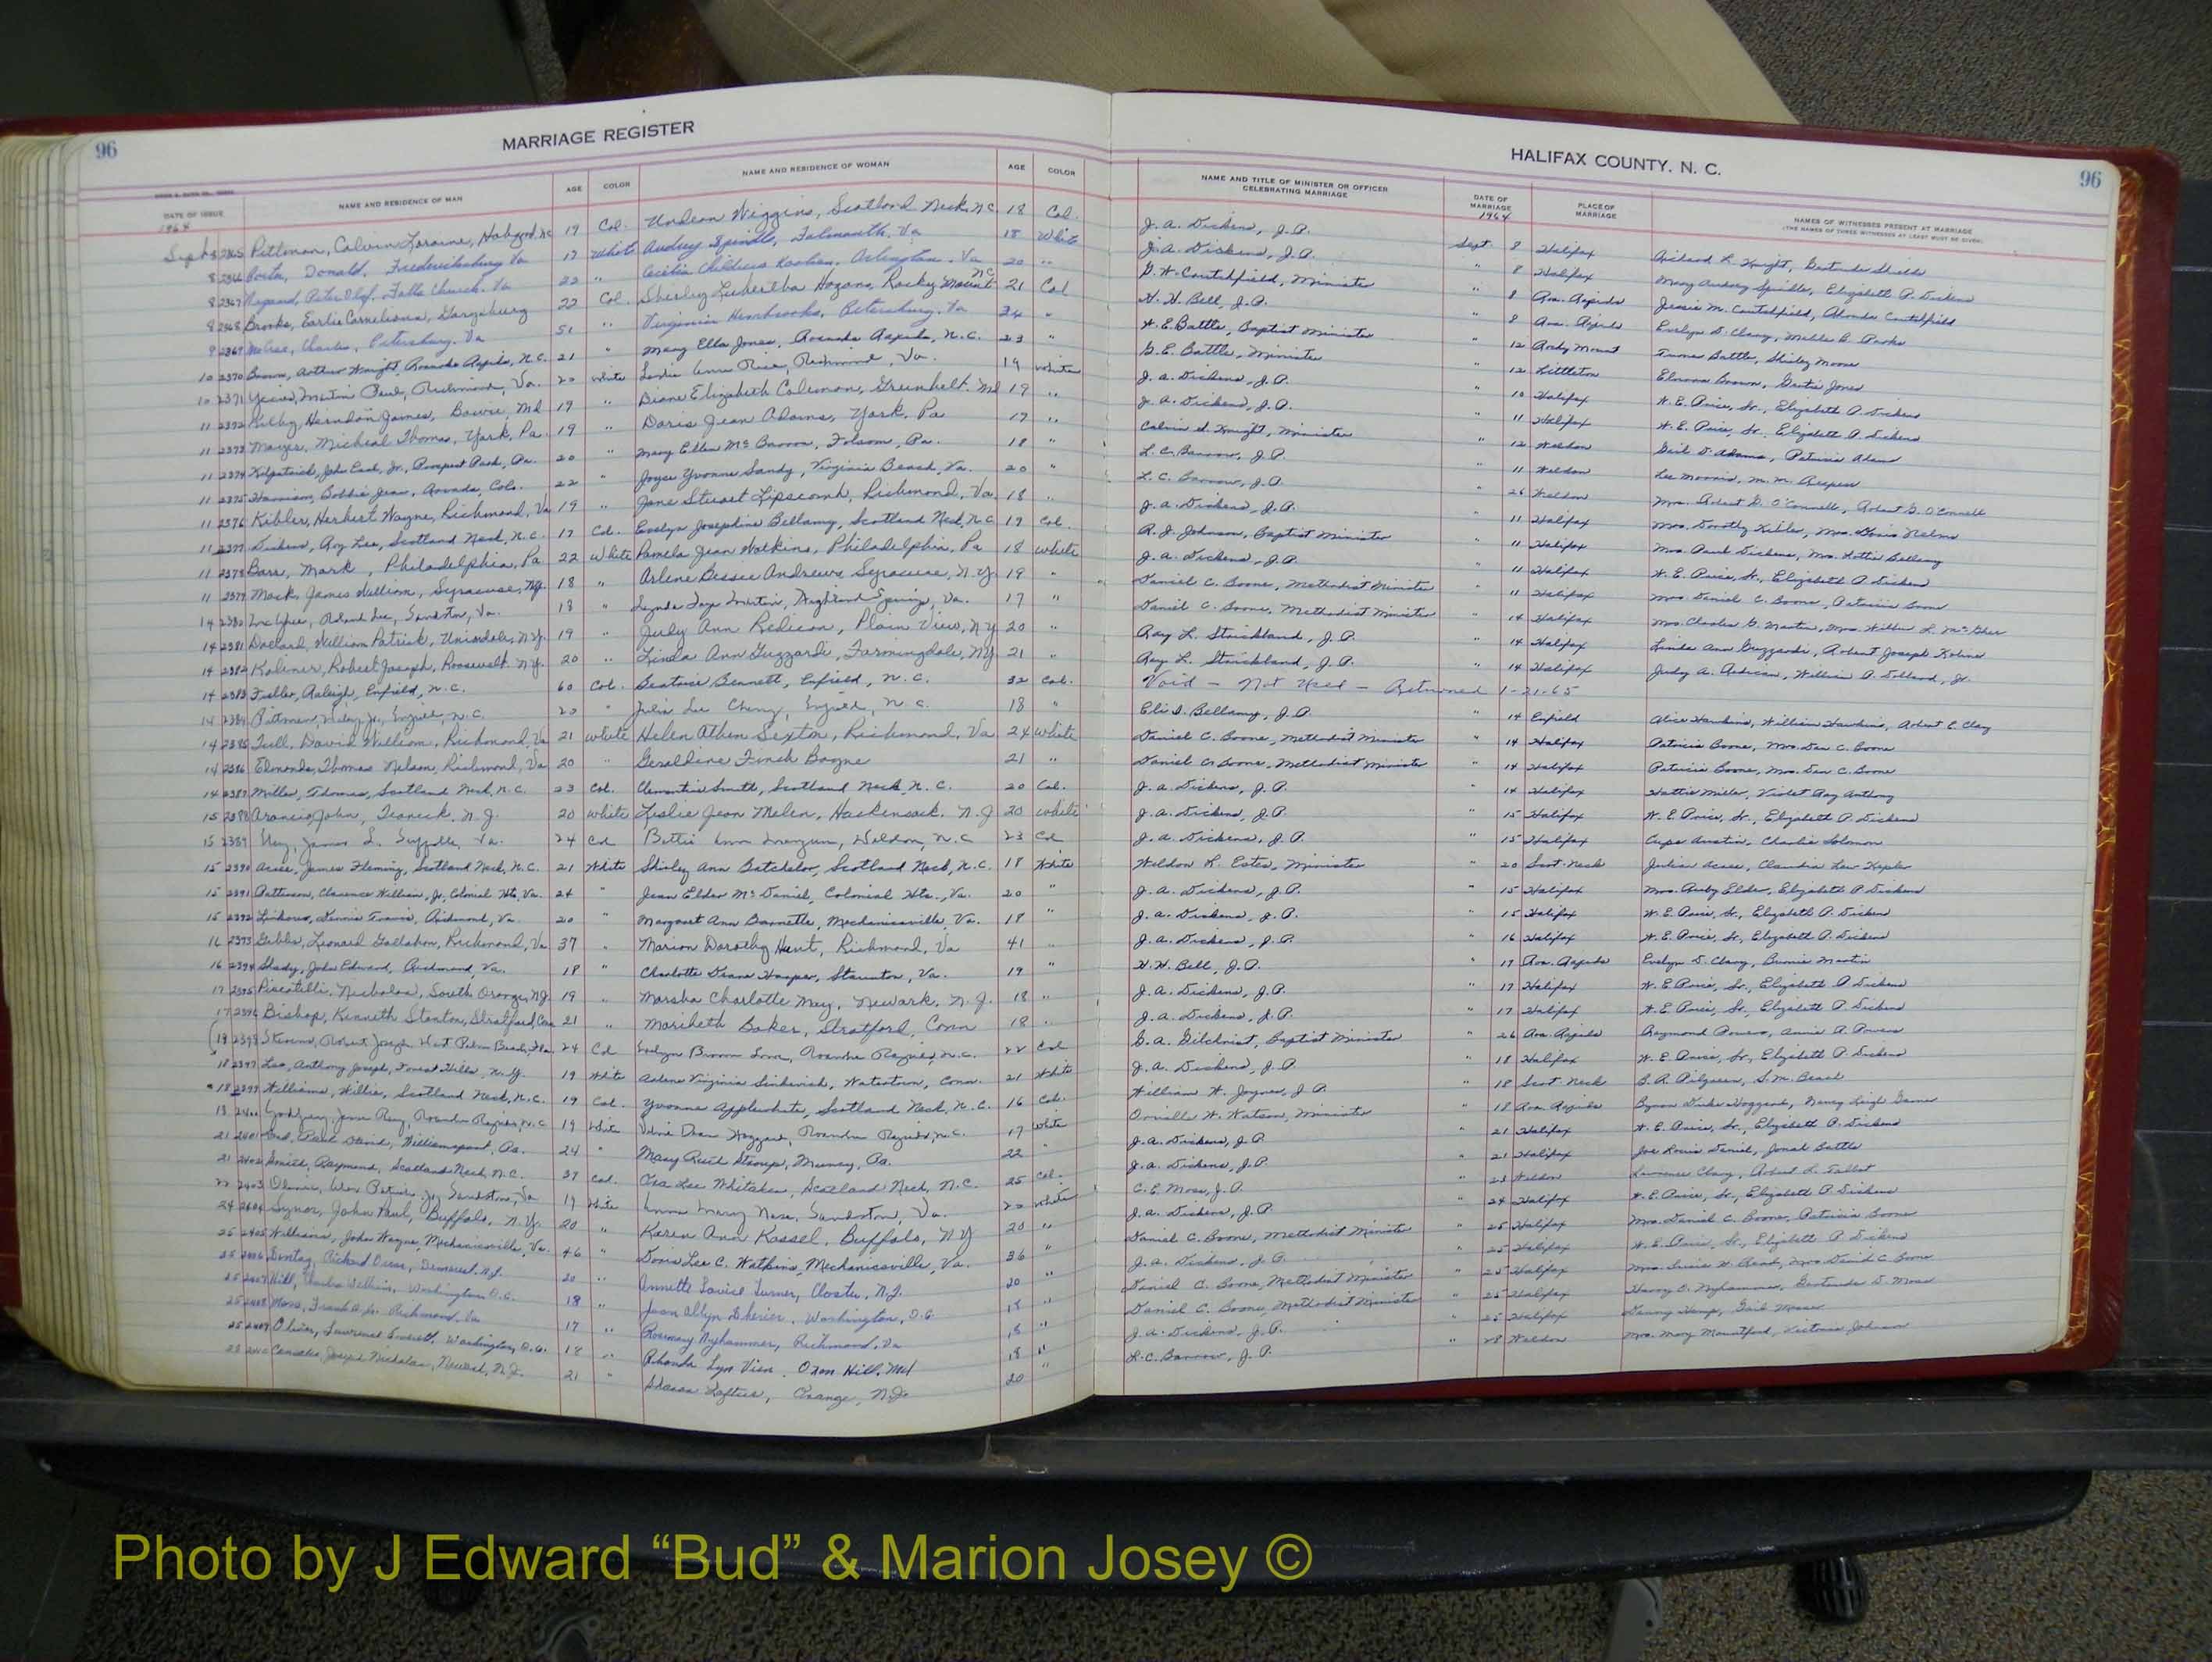 96
MARRIAGE REGISTER
DATE OF ISSUE 1964 NAME AND RESIDENCE OF MAN AGE COLOR NAME AND RESIDENCE OF WOMAN AGE COLOR
Sept 8 2365 Pittman, Calvin Loraine, Hobgood, NC 19 Col. Undean Wiggins, Scotland Neck, NC 18 Col.
8 2366 Donald, Fredericksburg Va 17 White Audrey Spindle, Falmouth, Va 18 White
8 2367 Falls Church, Va 22 " Arlington, Va 20 "
8 2368 Brooks, Earlie Cornelious, Garysburg 22 Col. Shirley Hogans, Rocky Mount NC 21 Col
9 2369 McCrae, Charles, Petersburg, Va 51 " Virginia Petersburg, Va 34 "
10 2370 Brown, Arthur Wright, Roanoke Rapids, N.C. 21 " Mary Ella Jones, Roanoke Rapids, N.C. 23 "
10 2371 Martin Paul, Richmond, Va. 20 White Richmond, Va. 19 White
11 2372 Kilby, Herndon James, Bowie, Md 19 " Diane Elizabeth Coleman, Greenbelt, Md 19 "
11 2373 Mayer, Micheal Thomas, York, Pa. 19 " Doris Jean Adams, York, Pa 17 "
11 2374 Kilpatrick, John Earl, Jr., Prospect Park, Pa. 20 " Mary Ellen McBarron, Folsom, Pa. 18 "
11 2375 Harrison, Bobbie Jean, Arvada, Colo. 22 " Joyce Yvonne Sandy, Virginia Beach, Va. 20 "
11 2376 Kibler, Herbert Wayne, Richmond, Va 19 " Jane Stuart Lipscomb, Richmond, Va. 18 "
11 2377 Dickens, Roy Lee, Scotland Neck, N.C. 17 Col. Evelyn Josephine Bellamy, Scotland Neck, N.C. 17 Col.
11 2378 Bass, Mark, Philadelphia, Pa 22 White Pamela Jean Watkins, Philadelphia, Pa 18 White
11 2379 Mack, James William, Syracuse, NY. 18 " Arlene Bessie Andrews Syracuse, N.Y. 19 "
14 2380 Sandston, Va. 18 " Lynda Faye Martin, Highland Springs, Va. 17 "
14 2381 Dollard, William Patrick, Uniondale, N.Y. 19 " Judy Ann Redican, Plain View, N.Y 20 "
14 2382 Koliner, Robert Joseph, Roosevelt, N.Y. 20 " Linda Ann Guzzardi, Farmingdale, NY 21 "
14 2383 Fuller, Raleigh, Enfield, N.C. 60 Col. Beatrice Bennett, Enfield, N.C. 32 Col.
14 2384 Pittman, Wiley Jr., Enfield, N.C. 20 " Julia Lee Cherry, Enfield, N.C. 18 "
14 2385 Tull, David William, Richmond, Va 21 White Helen Athen Sexton, Richmond, Va 24 White
14 2386 Edmonds, Thomas Nelson, Richmond, Va 20 " Geraldine Finch Bayne 21 "
14 2387 Miller, Thomas, Scotland Neck, N.C. 23 Col. Clementine Smith, Scotland Neck, N.C. 20 Col.
15 2388 Arancio, John, Teaneck, N.J. 20 White Leslie Jean Melen, Hackensack, N.J 20 White
15 2389 James L. Suffolk, Va. 24 Col Bettie Ann Weldon, N.C 23 Col
15 2390 Acree, James Fleming, Scotland Neck, N.C. 21 White Shirley Ann Batchelor, Scotland Neck, N.C. 18 White
15 2391 Patterson, Clarence William, Jr, Colonial Hts, Va. 24 " Jean Elder McDaniel, Colonial Hts., Va. 20 "
15 2392 Dennis Travis, Richmond, Va. 20 " Margaret Ann Barnette, Mechanicsville, Va. 18 "
16 2393 Gibbs, Leonard Gallahon, Richmond, Va 37 " Marion Dorothy Hunt, Richmond, Va 41 "
16 2394 Shady, John Edward, Richmond, Va. 18 " Charlotte Diane Harper, Staunton, Va. 19 "
17 2395 Piscatelli, Nicholas, South Orange, N.J. 19 " Marsha Charlotte May, Newark, N.J. 18 "
17 2396 Bishop, Kenneth Stanton, Stratford, Conn 21 " Maribeth Baker, Stratford, Conn 18 "
18 2398 Stevens, Robert Joseph West Palm Beach, Fla. 24 Col Evelyn Brown Roanoke Rapids, N.C. 22 Col
18 2397 Leo, Anthony Joseph, Forest Hills, N.Y. 19 White Arlene Virginia Watertown, Conn. 21 White
18 2399 Williams, Willie, Scotland Neck, N.C. 19 Col. Yvonne Applewhite, Scotland Neck, N.C. 16 Col.
18 2400 Roanoke Rapids, N.C 19 White Hoggard, Roanoke Rapids, N.C. 17 White
21 2401 Williamsport, Pa. 24 " Mary Ruth Stroup, Muncy, Pa. 22 "
21 2402 Daniel, Raymond, Scotland Neck, N.C. 37 Col. Ora Lee Whitaker, Scotland Neck, N.C. 25 Col.
22 2403 Sandston, Va 19 White Sandston, Va. 20 White
24 2404 Synor, John Paul, Buffalo, N.Y. 20 " Karen Ann Kassel, Buffalo, N.Y 20 "
25 2405 Williams, John Wayne, Mechanicsville, Va. 46 " Doris Lee C. Watkins, Mechanicsville, Va. 36 "
25 2406 Richard Demarest, N.J. 20 " Annette Louise Turner, Closter, N.J. 20 "
25 2407 Hill, Charles William, Washington D.C. 18 " Joan Allyn Sherier, Washington, D.C 18 "
25 2408 Moss, Frank A. Jr. Richmond, Va 17 " Rosemary Nyhammer, Richmond, Va 18 "
25 2409 Oliver, Lawrence Everett, Washington, D.C. 18 " Rhonda Lyn Vien, Oxon Hill, Md 18 "
28 2410 Joseph Nicholas, Newark, N.J. 21 " Loftus, Orange, N.J. 20
HALIFAX COUNTY, N. C.
96
NAME AND TITLE OF MINISTER OR OFFICER CELEBRATING MARRIAGE DATE OF MARRIAGE 1964 PLACE OF MARRIAGE NAMES OF WITNESSES PRESENT AT MARRIAGE
(THE NAMES OF THREE WITNESSES AT LEAST MUST BE GIVEN)
J. A. Dickens, J.P. Sept. 8 Halifax Richard L. Knight, Gertrude Shields
J. A. Dickens, J.P. " 8 Halifax Mary Audrey Spindle, Elizabeth P. Dickens
G. W. Crutchfield, Minister " 8 Roa. Rapids Jessie M. Crutchfield, Rhonda Crutchfield
W. W. Bell, J.P. " 8 Roa. Rapids Evelyn D. Clary, B. Parks
W. E. Battle, Baptist Minister " 12 Rocky Mount Battle, Shirley Moore
G. E. Battle, Minister " 12 Littleton Elnora Brown, Jones
J. A. Dickens, J.P. 10 Halifax W. E. Price, Sr., Elizabeth P. Dickens
J. A. Dickens, J.P. 11 Halifax W. E. Price, Sr., Elizabeth P. Dickens
Calvin S. Knight, Minister " 12 Weldon Gail D. Adams, Patricia Adams
L. C. Barrow, J.P. 11 Weldon Lee Morris, M. M.
L. C. Barrow, J.P. " 26 Weldon Mrs. Robert G. O'Connell, Robert G. O'Connell
J. A. Dickens, J.P. " 11 Halifax Mrs. Dorothy Kibler, Mrs. Doris Nelms
R. J. Johnson, Baptist Minister " 11 Halifax Mrs. Pearl Dickens, Mrs. Lottie Bellamy
J. A. Dickens, J.P. " 11 Halifax W. E. Price, Sr., Elizabeth P. Dickens
Daniel C. Boone, Methodist Minister " 11 Halifax Mrs. Daniel C. Boone, Patricia Boone
Daniel C. Boone, Methodist Minister " 14 Halifax Mrs. Charles G. Martin, Mrs. Wilbur L.
Ray L. Strickland, J.P. " 14 Halifax Linda Ann Guzzardi, Robert Joseph Koliner
Ray L. Strickland, J.P. " 14 Halifax Judy A. Redican, William P. Dollard, Jr.
Void - Not Used - Returned 1-21-65
Eli S. Bellamy, J.P. " 14 Enfield Alice Hawkins, William Hawkins, Robert E. Clay
Daniel C. Boone, Methodist Minister " 14 Halifax Patricia Boone, Mrs. Dan C. Boone
Daniel C. Boone, Methodist Minister " 14 Halifax Patricia Boone, Mrs. Dan C. Boone
J. A. Dickens, J.P. " 14 Halifax Hattie Miller, Violet Ray Anthony
J. A. Dickens, J.P. " 15 Halifax W. E. Price, Sr., Elizabeth P. Dickens
J. A. Dickens, J.P. " 15 Halifax Austin, Charlie Solomon
Weldon R. Estes, Minister " 20 Scot. Neck Julian Acree, Claudia Lew
J. A. Dickens, J.P. " 15 Halifax Mrs. Ruby Elder, Elizabeth P. Dickens
J. A. Dickens, J.P. " 15 Halifax W. E. Price, Sr., Elizabeth P. Dickens
J. A. Dickens, J.P. " 16 Halifax W. E. Price, Sr., Elizabeth P. Dickens
W. W. Bell, J.P. " 17 Roa. Rapids Evelyn D. Clary, Bunnie Martin
J. A. Dickens, J.P. " 17 Halifax W. E. Price, Sr., Elizabeth P. Dickens
J. A. Dickens, J.P. " 17 Halifax W. E. Price, Sr., Elizabeth P. Dickens
G. A. Gilchrist, Baptist Minister " 26 Roa. Rapids Raymond Powers, Annie R. Powers
J. A. Dickens, J.P. " 18 Halifax W. E. Price, Sr., Elizabeth P. Dickens
William H. Joyner, J.P. " 18 Scot Neck B. A. Pilgreen, S. M. Beach
Orville W. Watson, Minister " 18 Roa. Rapids Byron Duke Hoggard, Nancy Leigh
J. A. Dickens, J.P. " 21 Halifax W. E. Price, Sr., Elizabeth P. Dickens
J. A. Dickens, J.P. " 21 Halifax Joe Louis Daniel, Jonah Battle
C. E. Moss, J.P. 23 Weldon Lawrence Clary, Robert L.
J. A. Dickens, J.P. " 24 Halifax W. E. Price, Sr., Elizabeth P. Dickens
Daniel C. Boone, Methodist Minister " 25 Halifax Mrs. Daniel C. Boone, Patricia Boone
J. A. Dickens, J.P. " 25 Halifax W. E. Price, Sr., Elizabeth P. Dickens
Daniel C. Boone, Methodist Minister " 25 Halifax Mrs. Mrs. David C. Boone
Daniel C. Boone, Methodist Minister " 25 Halifax Harry O. Nyhammer, Gertrude D. Moss
J. A. Dickens, J.P. " 25 Halifax
L. C. Barrow, J.P. " 28 Weldon Mrs. Mary Mountford, Victoria Johnson
Photo by J Edward “Bud” & Marion Josey ©